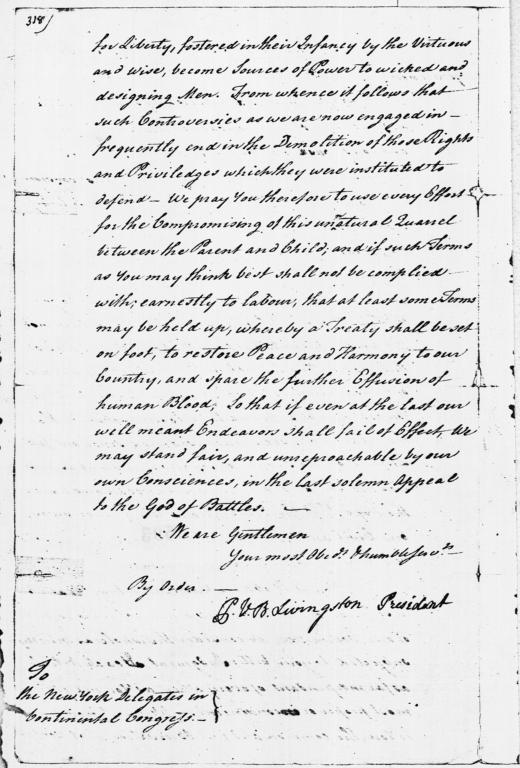 318)
for Liberty, fostered in their Infancy by the Virtuous
and wise, become Sources of Power to wicked and
designing Men. From whence it follows that
such Controversies as we are now engaged in –
frequently end in the Demolition of those Rights
and Priviledges which they were instituted to
defend – We pray You therefore to use every Effort
for the Compromising of this unnatural Quarrel
between the Parent and Child; and if such Terms
as You may think best shall not be complied
with; earnestly to labour, that at least some Terms
may be held up, whereby a Treaty shall be set
on foot, to restore Peace and Harmony to our
Country, and spare the further Effusion of
human Blood; So that if even at the last our
well meant Endeavors shall fail of Effect, We
may stand fair, and unreproachable by our
own Consciences, in the last solemn Appeal
to the God of Battles. —
We are Gentlemen
Your most Obedt. & humble Servts. —
By Order. —
P. V. B. Livingston President
To
the New York Delegates in
Continental Congress. —